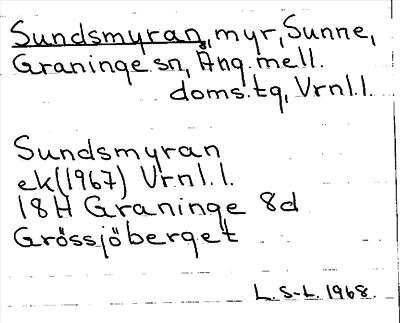 Sundsmyran, myr, Sunne,
Graninge sn, Ång. mell.
doms.tg, Vrnl.l.
Sundsmyran
ek(1967) Vrnl.l.
18H Graninge 8d
Grössjöberget
L.S-L. 1968.